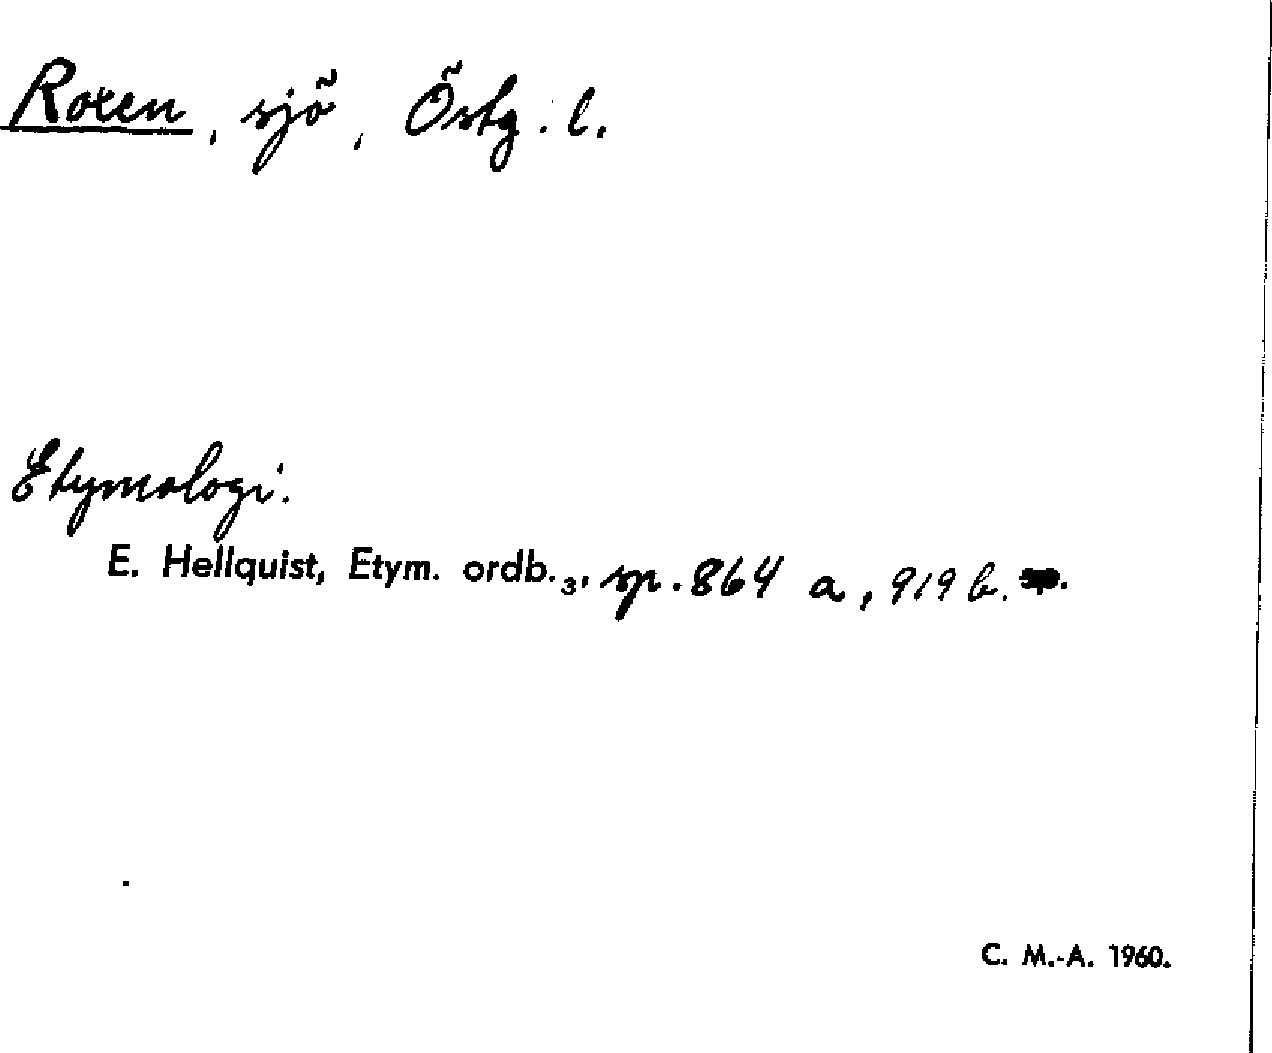 Roxen, sjö, Östg. l.
Etymologi.
E. Hellquist, Etym. ordb.₃, sp. 864 a, 919 b.
C. M.-A. 1960.